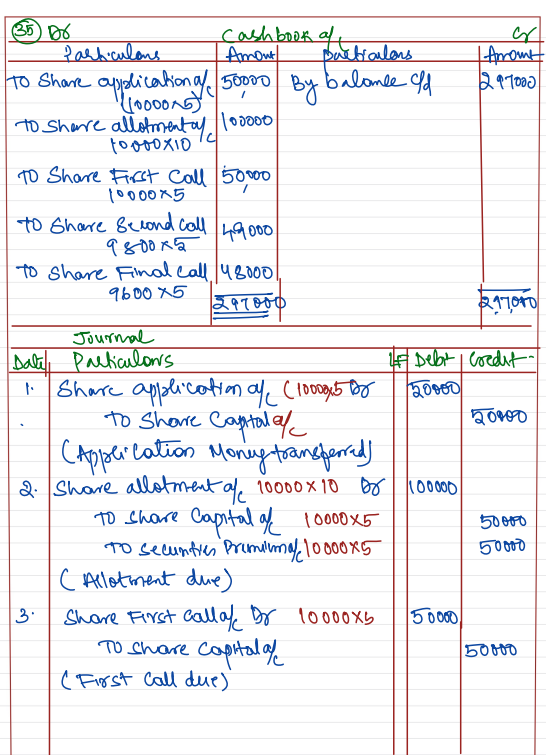 35 Dr Cash book a/c Cr
Particulars Amount Particulars Amount
To Share application a/c 50000 By balance c/d 297000
(10000x5)
To Share allotment a/c 100000
10000x10
To Share First Call 50,000
10000x5
To Share Second call 49000
9800x5
To Share Final call 48000
9600x5 297000 297000
Journal
Date Particulars LF Debt Credit
1. Share application a/c (10000x5 Dr 50000
To Share Capital a/c 50000
(Application Money transferred)
2. Share allotment a/c 10000x10 Dr 100000
To Share Capital a/c 10000x5 50000
To Securities Premium a/c 10000x5 50000
(Allotment due)
3. Share First Call a/c Dr 10000x5 50000
To Share Capital a/c 50000
(First call due)